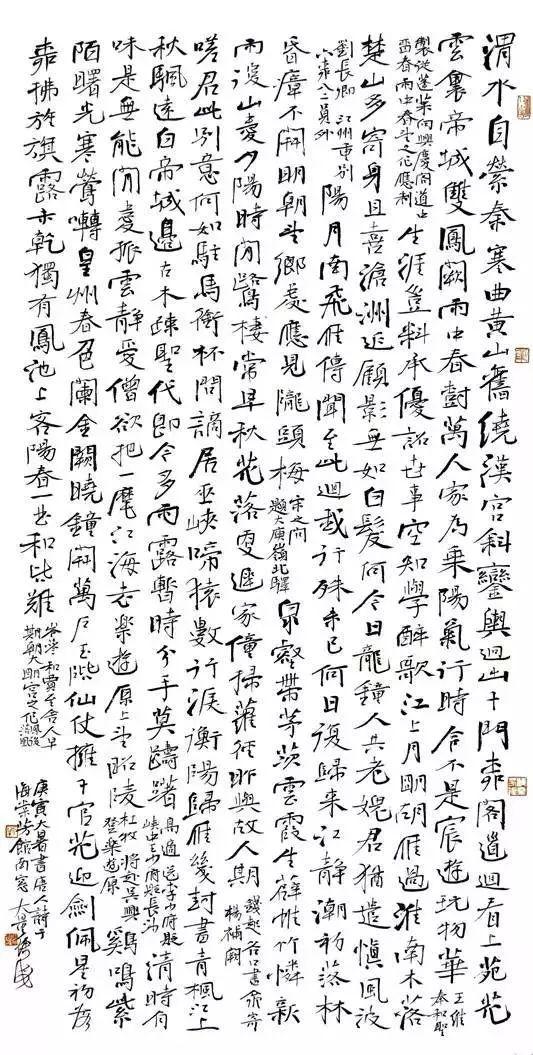 渭水自縈秦塞曲黃山舊繞漢宮斜鑾輿迥出千門柳閣道迴看上苑花
雲裏帝城雙鳳闕雨中春樹萬人家為乘陽氣行時令不是宸遊玩物華 王維奉和聖
製從蓬萊向興慶閣道中留春雨中春望之作應制 生涯豈料承優詔世事空知學醉歌江上月明胡雁過淮南木落
楚山多寄身且喜滄洲近顧影無如白髮何今日龍鍾人共老媿君猶遣慎風波
劉長卿江州重別薛六柳八二員外 陽月南飛雁傳聞至此迴我行殊未已何日復歸來江靜潮初落林
昏瘴不開明朝望鄉處應見隴頭梅 宋之問題大庾嶺北驛 泉壑帶茅茨雲霞生薜帷竹憐新
雨後山愛夕陽時閒鷺棲常早秋花落更遲家僮掃蘿徑昨與故人期 錢起谷口書齋寄楊補闕
嗟君此別意何如駐馬銜杯問謫居巫峽啼猿數行淚衡陽歸雁幾封書青楓江上
秋颿遠白帝城邊古木疎聖代即今多雨露暫時分手莫躊躇 高適送李少府貶峽中王少府貶長沙 清時有
味是無能閒愛孤雲靜愛僧欲把一麾江海去樂遊原上望昭陵 杜牧將赴吳興登樂遊原 雞鳴紫
陌曙光寒鶯囀皇州春色闌金闕曉鐘開萬戶玉階仙仗擁千官花迎劍佩星初落
柳拂旌旗露未乾獨有鳳池上客陽春一曲和皆難 岑參和賈至舍人早朝大明宮之作
庚寅大暑書唐人詩于
海棠芳館南窗